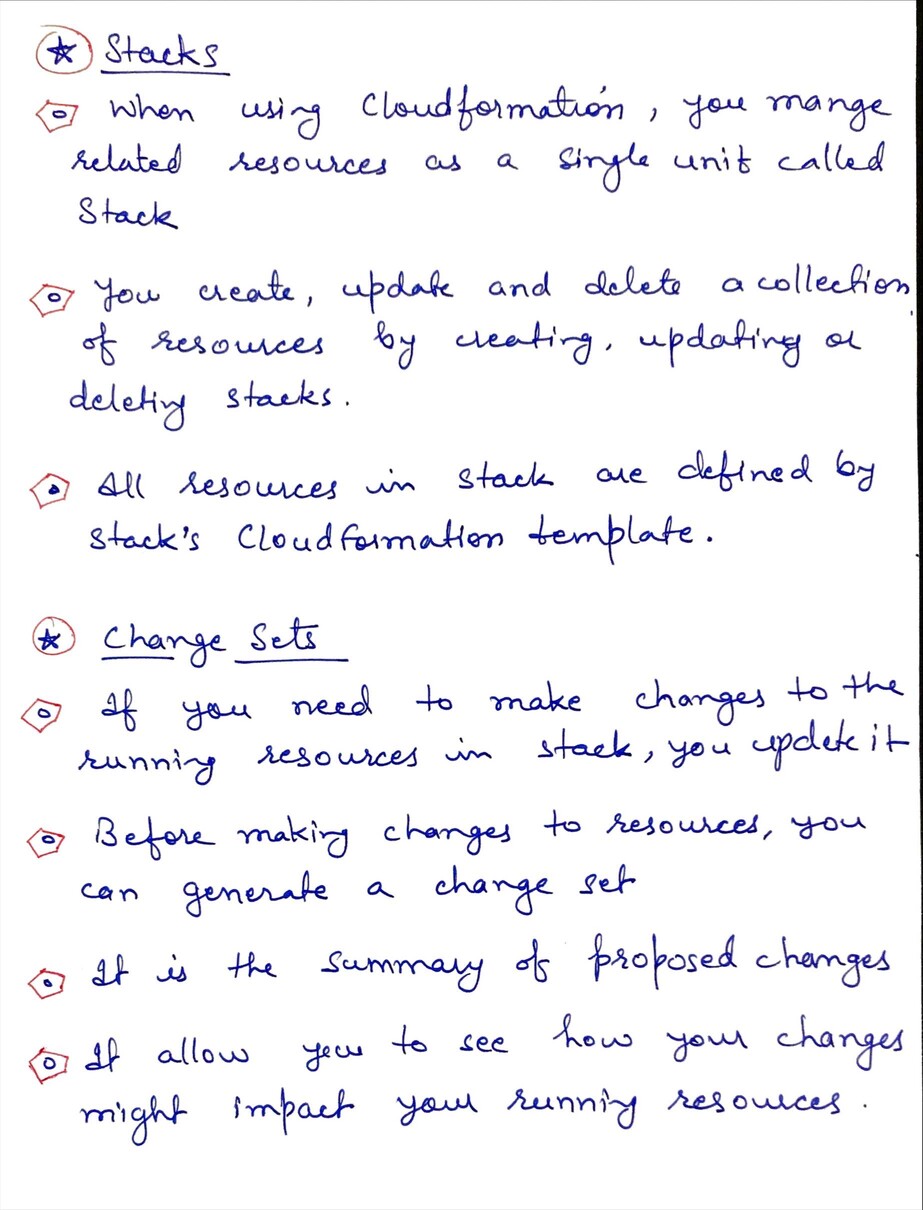 Stacks
When using Cloudformation, you mange
related resources as a single unit called
Stack
You create, update and delete a collection
of resources by creating, updating or
deleting stacks.
All resources in stack are defined by
Stack's Cloudformation template.
Change Sets
If you need to make changes to the
running resources in stack, you update it
Before making changes to resources, you
can generate a change set
It is the summary of proposed changes
It allow you to see how your changes
might impact your running resources.